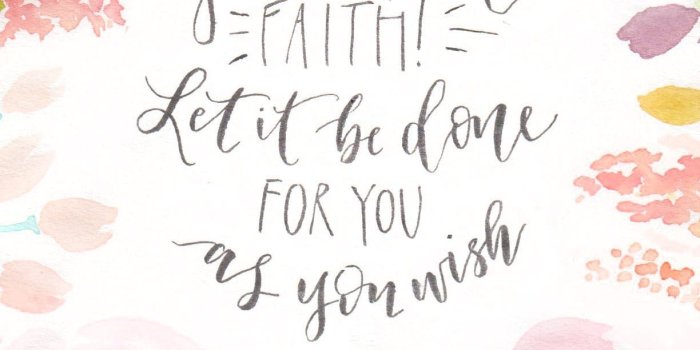 FAITH!
Let it be done
FOR YOU
as you wish